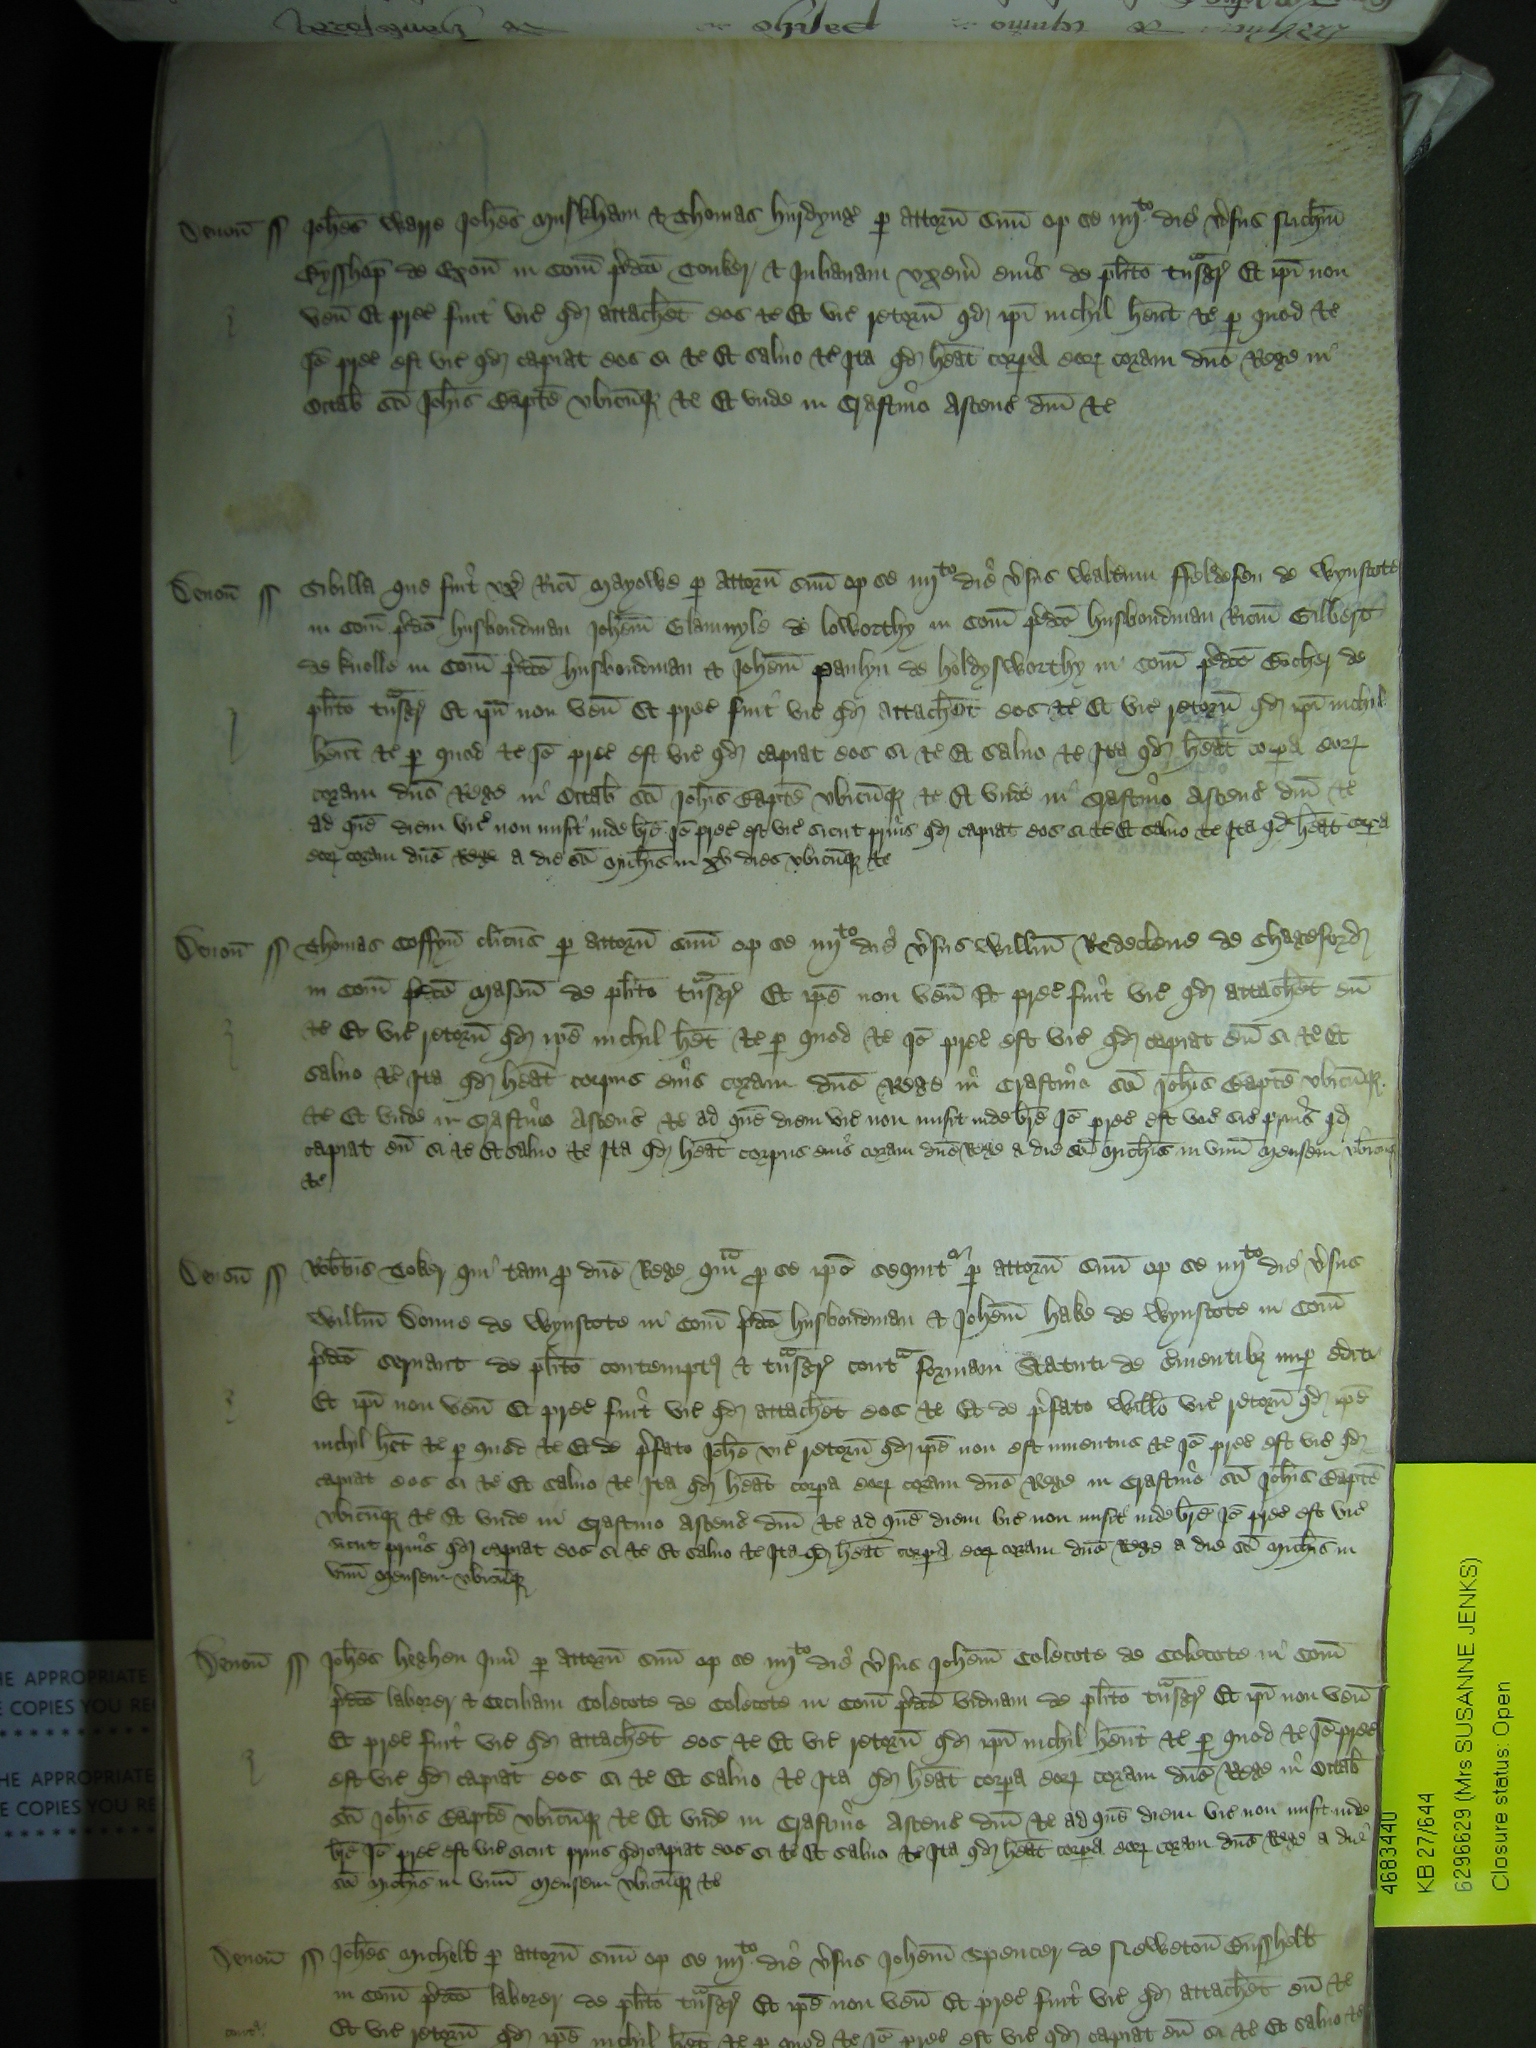 Devoñ ss Joh̃es Warre Joh̃es Muskham & Thomas hurdyng p attorñ suũ op se iiijto die v̾sus Nich̃m
Bysshop de Exoñ in Com̃ p̃dc̃o Touker & Julianam vxem̃ eius de pl̃ito tnsgr̃ Et ip̃i non
veñ Et prec̃ fuit vic̃ qd attach̃et eos &c̃ Et vic̃ retorñ qd ip̃i nichil hẽnt &c̃ p quod &c̃
Iõ prec̃ est vic̃ qd capiat eos si &c̃ Et saluo &c̃ Ita qd hẽat corpa eoꝝ coram dño Rege in
Octab̃ sc̃i Joh̃is Bapt̃e vbicũqꝫ &c̃ Et vnde in Crastino Ascenc̃ dñi &c̃
Devoñ ss Sibilla que fuit vx̃ Ric̃i Mayowe p attorñ suũ op se iiijto die v̾sus Walterum ffeldefen de Wynscote
in Com̃ p̃dc̃o husbondman Joh̃em Glamvyle de loworthy in Com̃ p̃dc̃o husbondman Ric̃m Gilbert
de knolle in Com̃ p̃dc̃o husbondman & Joh̃em Paulyn de holdysworthy in Com̃ p̃dc̃o Bocher de
pl̃ito tnsgr̃ Et ip̃i non veñ Et prec̃ fuit vic̃ qd attach̃et eos &c̃ Et vic̃ retorñ qd ip̃i nichil
hẽnt &c̃ p quod &c̃ Iõ prec̃ est vic̃ qd capiat eos si &c̃ Et saluo &c̃ Ita qd hẽat corpa eoꝝ
coram dño Rege in Octab̃ sc̃i Joh̃is Bapt̃e vbicũqꝫ &c̃ Et vnde in Crastino Ascenc̃ dñi &c̃
ad quẽ diem vic̃ non misit inde br̃e Iõ prec̃ est vic̃ sicut prius qd capiat eos si &c̃ Et saluo &c̃ Ita qd hẽat corpa
eoꝝ coram dño Rege a die sc̃i Mich̃is in xv dies vbicũqꝫ &c̃
Devoñ ss Thomas Coffyñ cl̃icus p attorñ suũ op se iiijto die v̾sus Will̃m Redeclene de Chageford
in Com̃ p̃dc̃o Masoñ de pl̃ito tnsgr̃ Et ip̃e non veñ Et prec̃ fuit vic̃ qd attach̃et eũ
&c̃ Et vic̃ retorñ qd ip̃e nichil hẽt &c̃ p quod &c̃ Iõ prec̃ est vic̃ qd capiat eũ si &c̃ Et
saluo &c̃ Ita qd hẽat corpus eius coram dño Rege in Crastino sc̃i Joh̃is Bapt̃e vbicũqꝫ
&c̃ Et vnde in Crastino Ascenc̃ &c̃ ad quẽ diem vic̃ non misit inde br̃e Iõ prec̃ est vic̃ sic̃ prius qd
capiat eũ si &c̃ Et saluo &c̃ Ita qd hẽat corpus eius coram dño Rege a die sc̃i Mich̃is in vnũ Mensem vbicũqꝫ
&c̃
Devoñ ss Rob̃tus Toker qui tam p dño Rege qm̃ p se ip̃o sequitr p attorñ suũ op se iiijto die v̾sus
Will̃m Donne de Wynscote in Com̃ p̃dc̃o husbondman & Joh̃em hake de Wynscote in Com̃
p̃dc̃o seruant de pl̃ito contemptꝰ & tnsgr̃ contᵃ formam Statuti de s̃uientibꝫ nup editi
Et ip̃i non veñ Et prec̃ fuit vic̃ qd attach̃et eos &c̃ Et de p̃fato Will̃o vic̃ retorñ qd ip̃e
nichil hẽt &c̃ p quod &c̃ Et de p̃fato Joh̃e vic̃ retorñ qd ip̃e non est inuentus &c̃ Iõ prec̃ est vic̃ qd
capiat eos si &c̃ Et saluo &c̃ Ita qd hẽat corpa eoꝝ coram dño Rege in Crastino sc̃i Joh̃is Bapt̃e
vbicũqꝫ &c̃ Et vnde in Crastino Ascenc̃ dñi &c̃ ad quẽ diem vic̃ non misit inde br̃e Iõ prec̃ est vic̃
sicut prius qd capiat eos si &c̃ Et saluo &c̃ Ita qd hẽat corpa eoꝝ coram dño Rege a die sc̃i Mich̃is in
vnũ Mensem vbicũqꝫ
Devoñ ss Joh̃es heghen Juñ p attorñ suũ op se iiijto die v̾sus Joh̃em Colecote de Colecote in Com̃
p̃dc̃o laborer & Ceciliam Colecote de Colecote in Com̃ p̃dc̃o viduam de pl̃ito tnsgr̃ Et ip̃i non veñ
Et prec̃ fuit vic̃ qd attach̃et eos &c̃ Et vic̃ retorñ qd ip̃i nichil hẽnt &c̃ p quod &c̃ Iõ prec̃
est vic̃ qd capiat eos si &c̃ Et saluo &c̃ Ita qd hẽat corpa eoꝝ coram dño Rege in Octab̃
sc̃i Joh̃is Bapt̃e vbicũqꝫ &c̃ Et vnde in Crastino Ascenc̃ dñi &c̃ ad quẽ diem vic̃ non misit inde
br̃e Iõ prec̃ est vic̃ sicut prius qd capiat eos si &c̃ Et saluo &c̃ Ita qd hẽat corpa eoꝝ coram dño Rege a die
sc̃i Mich̃is in vnũ Mensem vbicũqꝫ &c̃
Devoñ ss Joh̃es Michell p attorñ suũ op se iiijto die v̾sus Joh̃em Spencer de Newetoñ Busshell
in Com̃ p̃dc̃o laborer de pl̃ito tnsgr̃ Et ip̃e non veñ Et prec̃ fuit vic̃ qd attach̃et eũ &c̃
Et vic̃ retorñ qd ip̃e nichil hẽt &c̃ p quod &c̃ Iõ prec̃ est vic̃ qd capiat eũ si &c̃ Et saluo &c̃
HE APPROPRIATE
E COPIES YOU RE
HE APPROPRIATE
E COPIES YOU RE
4683440
KB 27/644
6296629 (Mrs SUSANNE JENKS)
Closure status: Open